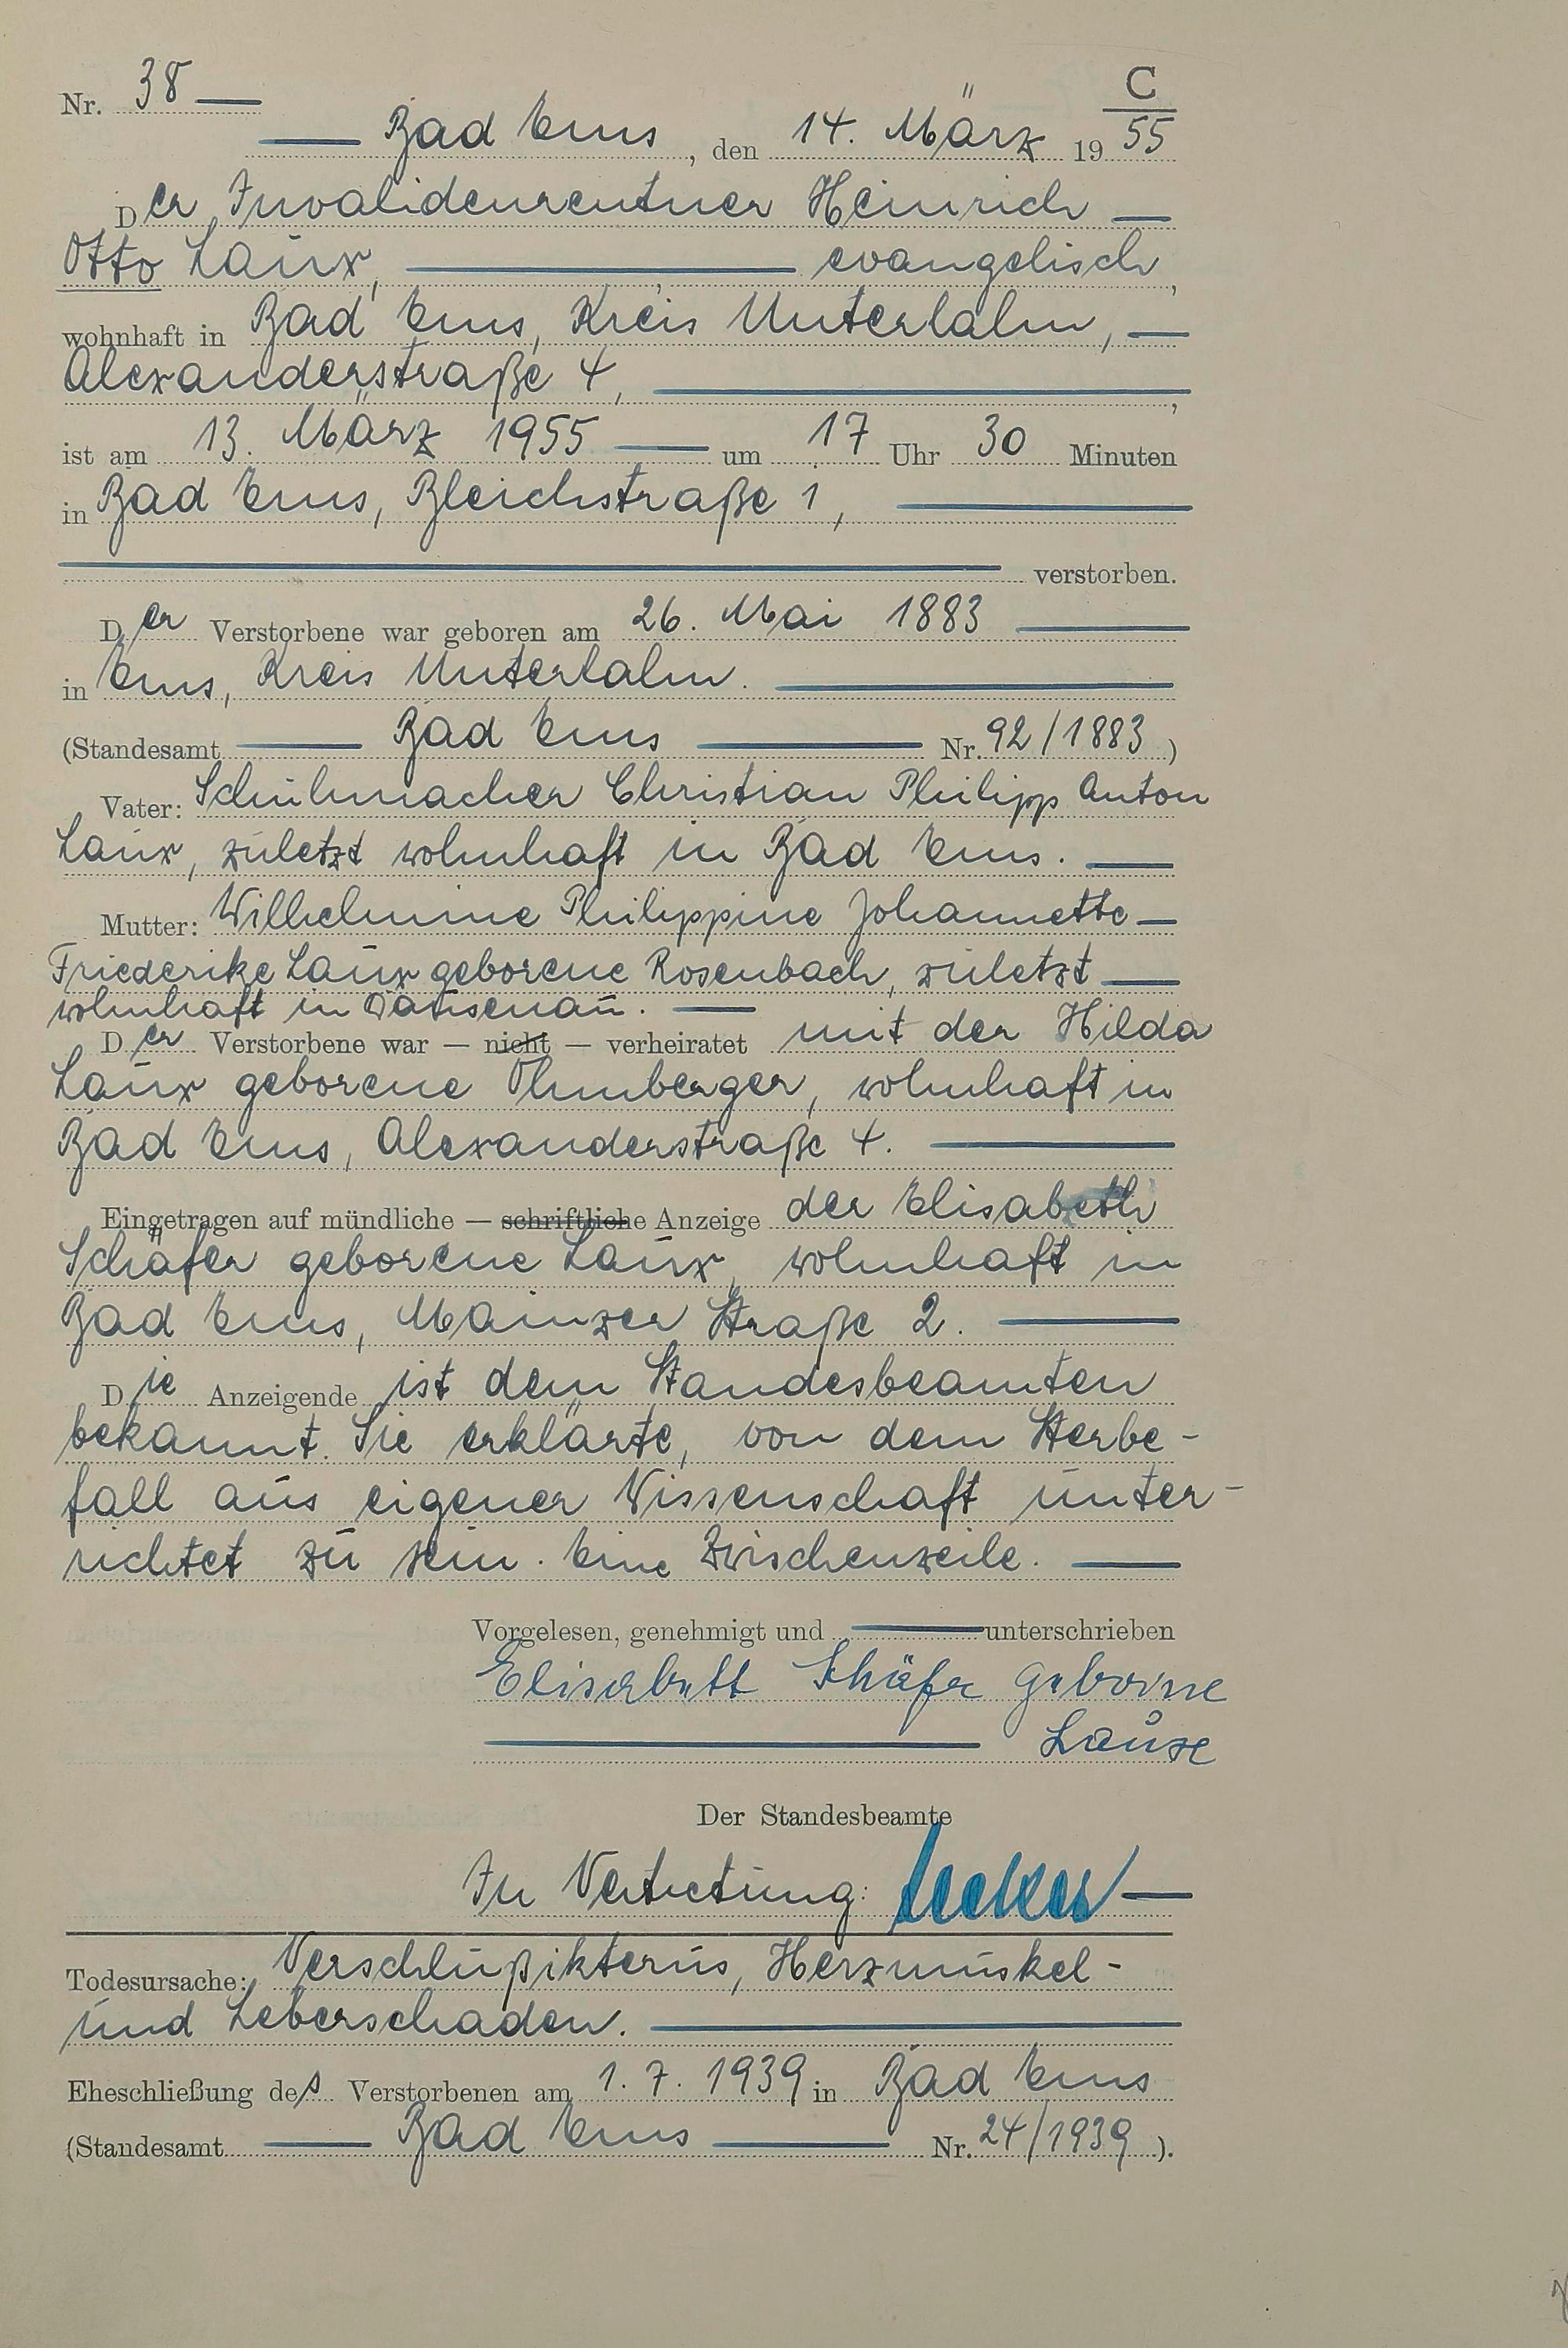 C
Nr. 38 —
— Bad Ems, den 14. März 1955
Der Invalidenrentner Heinrich —
Otto Laux, — evangelisch,
wohnhaft in Bad Ems, Kreis Unterlahn, —
Alexanderstraße 4, —,
ist am 13. März 1955 — um 17 Uhr 30 Minuten
in Bad Ems, Bleichstraße 1, —
— verstorben.
Der Verstorbene war geboren am 26. Mai 1883 —
in Ems, Kreis Unterlahn. —
(Standesamt — Bad Ems — Nr. 92/1883)
Vater: Schuhmacher Christian Philipp Anton
Laux, zuletzt wohnhaft in Bad Ems. —
Mutter: Wilhelmine Philippine Johannette —
Friederike Laux geborene Rosenbach, zuletzt —
wohnhaft in Dausenau. —
Der Verstorbene war — nicht — verheiratet mit der Hilda
Laux geborene Ohmberger, wohnhaft in
Bad Ems, Alexanderstraße 4. —
Eingetragen auf mündliche — schriftliche Anzeige der Elisabeth
Schäfer geborene Laux, wohnhaft in
Bad Ems, Mainzer Straße 2. —
Die Anzeigende ist dem Standesbeamten
bekannt. Sie erklärte, von dem Sterbe-
fall aus eigener Wissenschaft unter-
richtet zu sein. Eine Zwischenzeile. —
Vorgelesen, genehmigt und — unterschrieben
Elisabett Schäfer geborne
— Laux
Der Standesbeamte
In Vertretung: —
Todesursache: Verschlußikterus, Herzmuskel-
und Leberschaden. —
Eheschließung des Verstorbenen am 1. 7. 1939 in Bad Ems
(Standesamt — Bad Ems — Nr. 24/1939).